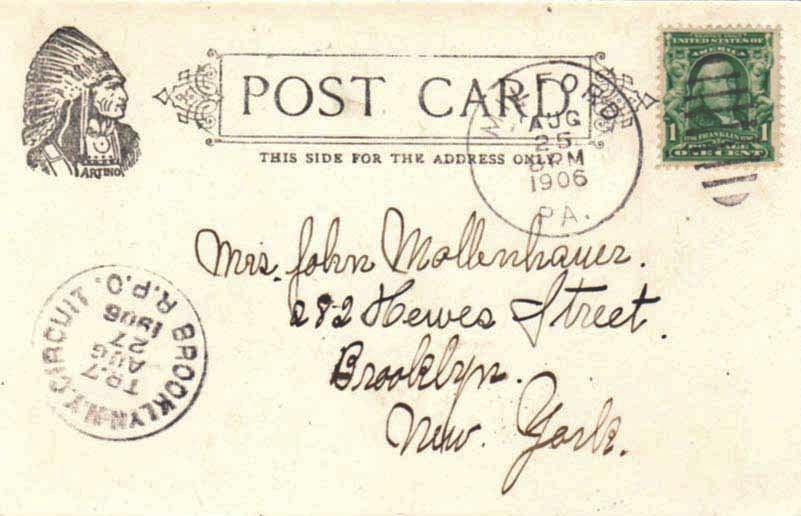 POST CARD
THIS SIDE FOR THE ADDRESS ONLY
ARTINO
MILFORD
AUG
25
8 PM
1906
PA.
UNITED STATES OF
AMERICA
1 1
FRANKLIN
ONE CENT
Mrs. John Mollenhauer.
282 Hewes Street.
Brooklyn.
New. York.
BROOKLYN N.Y. CIRCUIT. R.P.O.
TR.7
AUG
27
1906